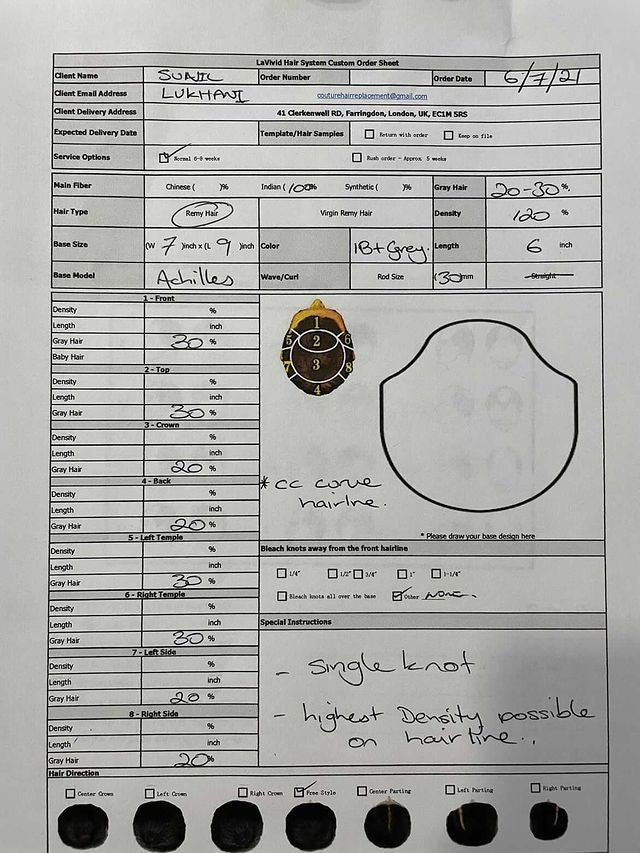 LaVivid Hair System Custom Order Sheet
Client Name SUNIL Order Number Order Date 6/7/21
Client Email Address LUKHANI couturehairreplacement@gmail.com
Client Delivery Address 41 Clerkenwell RD, Farringdon, London, UK, EC1M 5RS
Expected Delivery Date Template/Hair Samples Return with order Keep on file
Service Options Normal 6-8 weeks Rush order - Approx 5 weeks
Main Fiber Chinese ( )% Indian (100)% Synthetic ( )% Gray Hair 20-30 %
Hair Type Remy Hair Virgin Remy Hair Density 120 %
Base Size (W 7 )inch x (L 9 )inch Color 1B+Grey. Length 6 inch
Base Model Achilles Wave/Curl Rod Size (30)mm Straight
1 - Front
Density %
Length inch
Gray Hair 30 %
Baby Hair
2 - Top
Density %
Length inch
Gray Hair 30 %
3 - Crown
Density %
Length inch
Gray Hair 20 %
4 - Back
Density %
Length inch
Gray Hair 20 %
5 - Left Temple
Density %
Length inch
Gray Hair 30 %
6 - Right Temple
Density %
Length inch
Gray Hair 30 %
7 - Left Side
Density %
Length inch
Gray Hair 20 %
8 - Right Side
Density %
Length inch
Gray Hair 20%
1
5 2 6
3
7 8
4
* CC curve
hairline.
* Please draw your base design here
Bleach knots away from the front hairline
1/4" 1/2" 3/4" 1" 1-1/4"
Bleach knots all over the base Other NONE.
Special Instructions
- Single knot
- highest Density possible
on hairline..
Hair Direction
Center Crown Left Crown Right Crown Free Style Center Parting Left Parting Right Parting